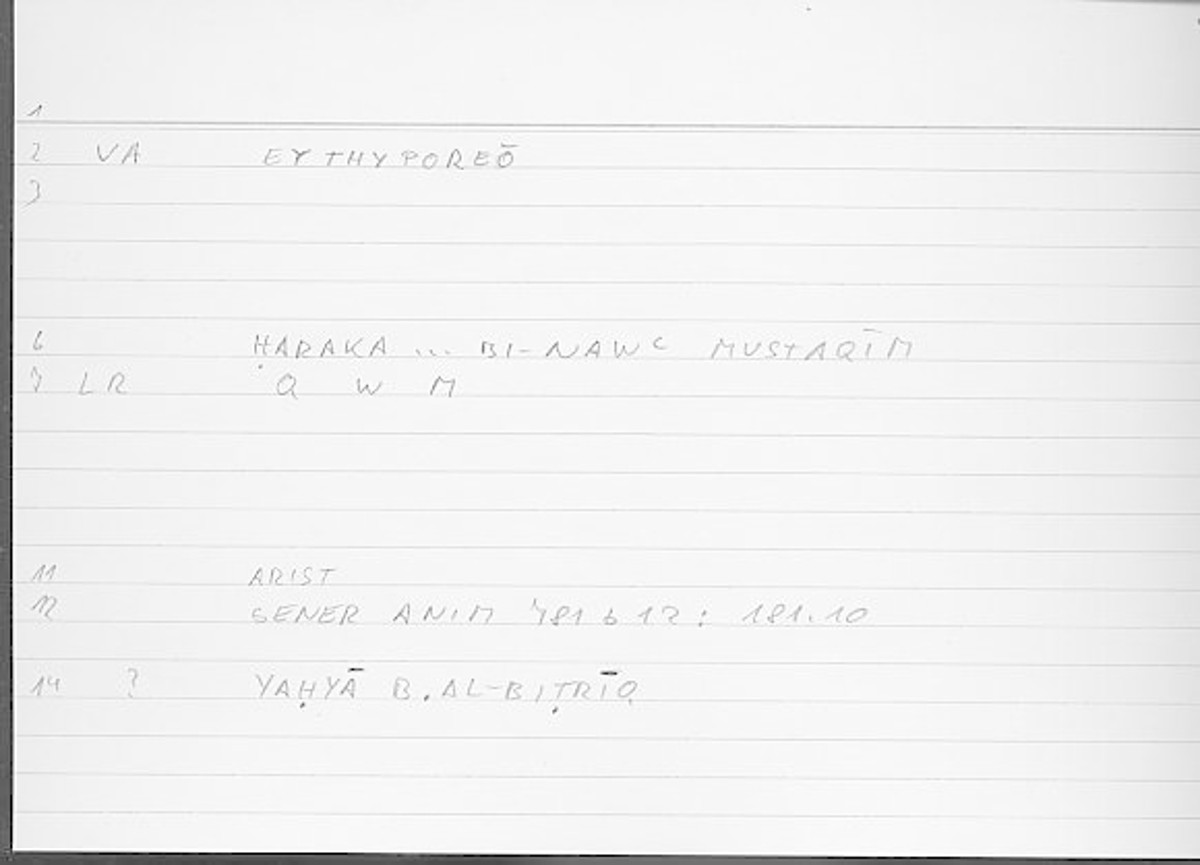 1
2 VA EYTHYPOREŌ
3
6 ḤARAKA ... BI-NAWC MUSTAQĪM
7 LR Q W M
11 ARIST
12 GENER ANIM 781 b 12: 181.10
14 ? YAḤYĀ B. AL-BIṬRĪQ